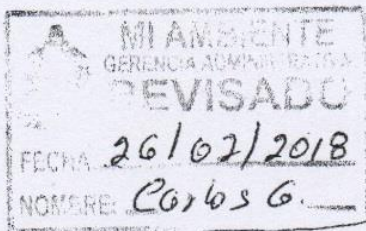 MI AMBIENTE
GERENCIA ADMINISTRATIVA
REVISADO
FECHA: 26/02/2018
NOMBRE: Carlos G.